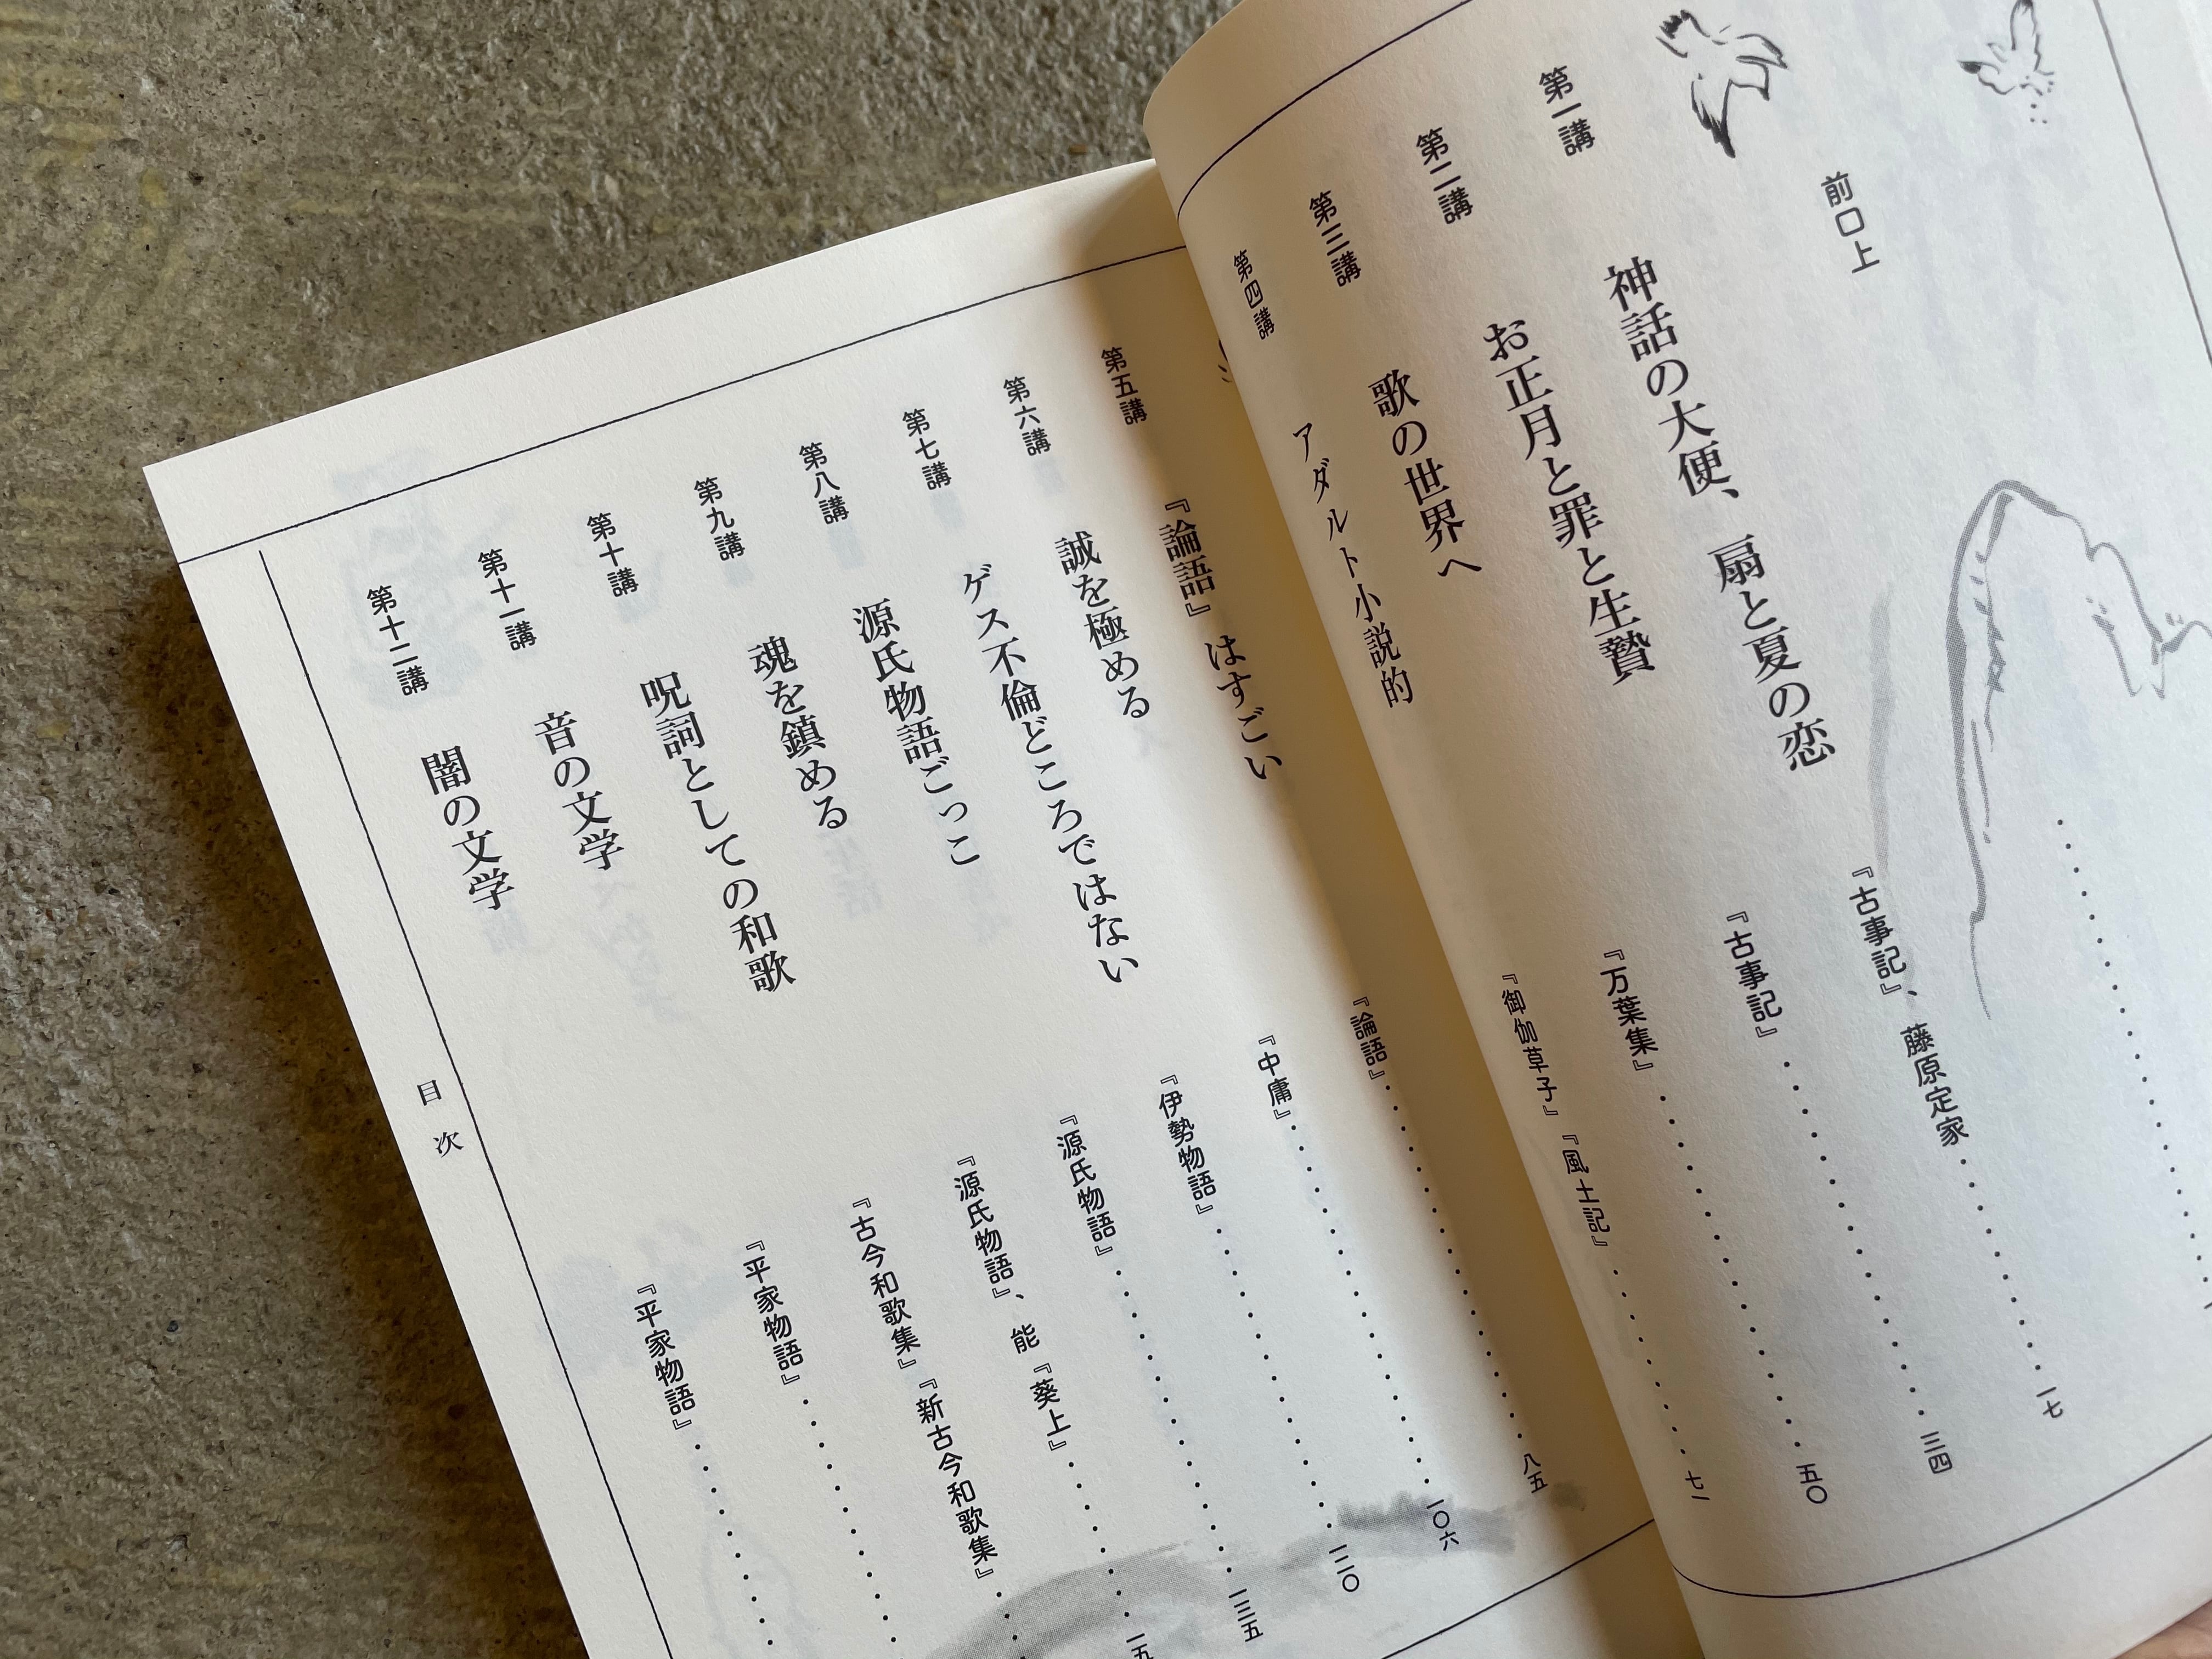 前口上
第一講 神話の大便、扇と夏の恋 『古事記』、藤原定家 一七
第二講 お正月と罪と生贄 『古事記』 三四
第三講 歌の世界へ 『万葉集』 五〇
第四講 アダルト小説的 『御伽草子』『風土記』 七一
第五講 『論語』はすごい 『論語』 八五
第六講 誠を極める 『中庸』 一〇六
第七講 ゲス不倫どころではない 『伊勢物語』 一二〇
第八講 源氏物語ごっこ 『源氏物語』 一三五
第九講 魂を鎮める 『源氏物語』、能『葵上』
第十講 呪詞としての和歌 『古今和歌集』『新古今和歌集』
第十一講 音の文学 『平家物語』
第十二講 闇の文学 『平家物語』
目次